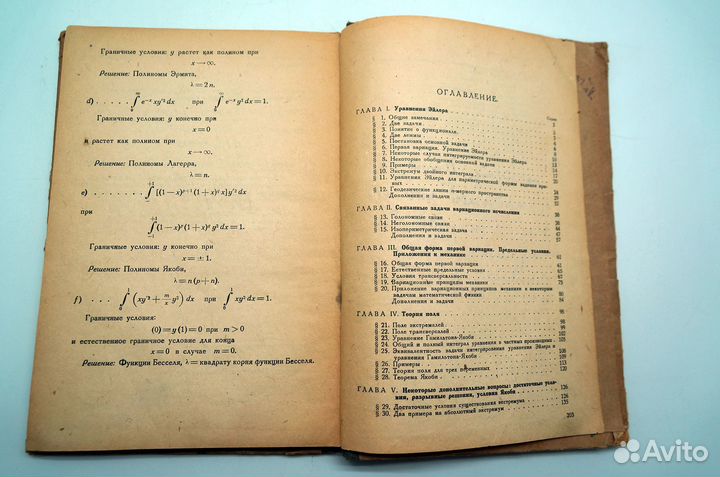 Граничные условия: y растет как полином при
x → ∞.
Решение: Полиномы Эрмита,
λ = 2n.
d) . . . . . ∫₀^∞ e⁻ˣ xy'² dx при ∫₀^∞ e⁻ˣ y² dx = 1.
Граничные условия: y конечно при
x = 0
и растет как полином при
x → ∞.
Решение: Полиномы Лагерра,
λ = n.
e) . . . . . ∫₋₁⁺¹ [(1—x)ᵖ⁺¹ (1+x)^q x] y'² dx
при
∫₋₁⁺¹ (1—x)ᵖ (1+x)^q y² dx = 1.
Граничные условия: y конечно при
x = ± 1.
Решение: Полиномы Якоби,
λ = n (p + n).
f) . . . . ∫₀¹ (xy'² + m/x y²) dx при ∫₀¹ xy² dx = 1.
Граничные условия:
(0) = y (1) = 0 при m > 0
и естественное граничное условие для конца
x = 0 в случае m = 0.
Решение: Функции Бесселя, λ = квадрату корня функции Бесселя.
ОГЛАВЛЕНИЕ.
ГЛАВА I. Уравнения Эйлера
§ 1. Общие замечания
§ 2. Две задачи
§ 3. Понятие о функционале
§ 4. Две леммы
§ 5. Постановка основной задачи
§ 6. Первая вариация. Уравнение Эйлера
§ 7. Некоторые случаи интегрируемости уравнения Эйлера
§ 8. Некоторые обобщения основной задачи
§ 9. Примеры
§ 10. Экстремум двойного интеграла
§ 11. Уравнения Эйлера для параметрической формы задания кри-
вых
§ 12. Геодезические линии n-мерного пространства
Дополнения и задачи
ГЛАВА II. Связанные задачи вариационного исчисления
§ 13. Голономные связи
§ 14. Неголономные связи
§ 15. Изопериметрические задачи
Дополнения и задачи
ГЛАВА III. Общая форма первой вариации. Предельные условия.
Приложения к механике
§ 16. Общая форма первой вариации
§ 17. Естественные предельные условия
§ 18. Условия трансверсальности
§ 19. Вариационные принципы механики
§ 20. Приложение вариационных принципов механики к некоторым
задачам математической физики
Дополнения и задачи
ГЛАВА IV. Теория поля
§ 21. Поле экстремалей
§ 22. Поле трансверсалей
§ 23. Уравнение Гамильтона-Якоби
§ 24. Общий и полный интеграл уравнения в частных производных
§ 25. Эквивалентность задачи интегрирования уравнения Эйлера и
уравнения Гамильтона-Якоби
§ 26. Примеры
§ 27. Теория поля для трех переменных
§ 28. Теорема Якоби
ГЛАВА V. Некоторые дополнительные вопросы: достаточные усло-
вия, разрывные решения, условия Якоби
§ 29. Достаточные условия существования экстремума
§ 30. Два примера на абсолютный экстремум
Avito